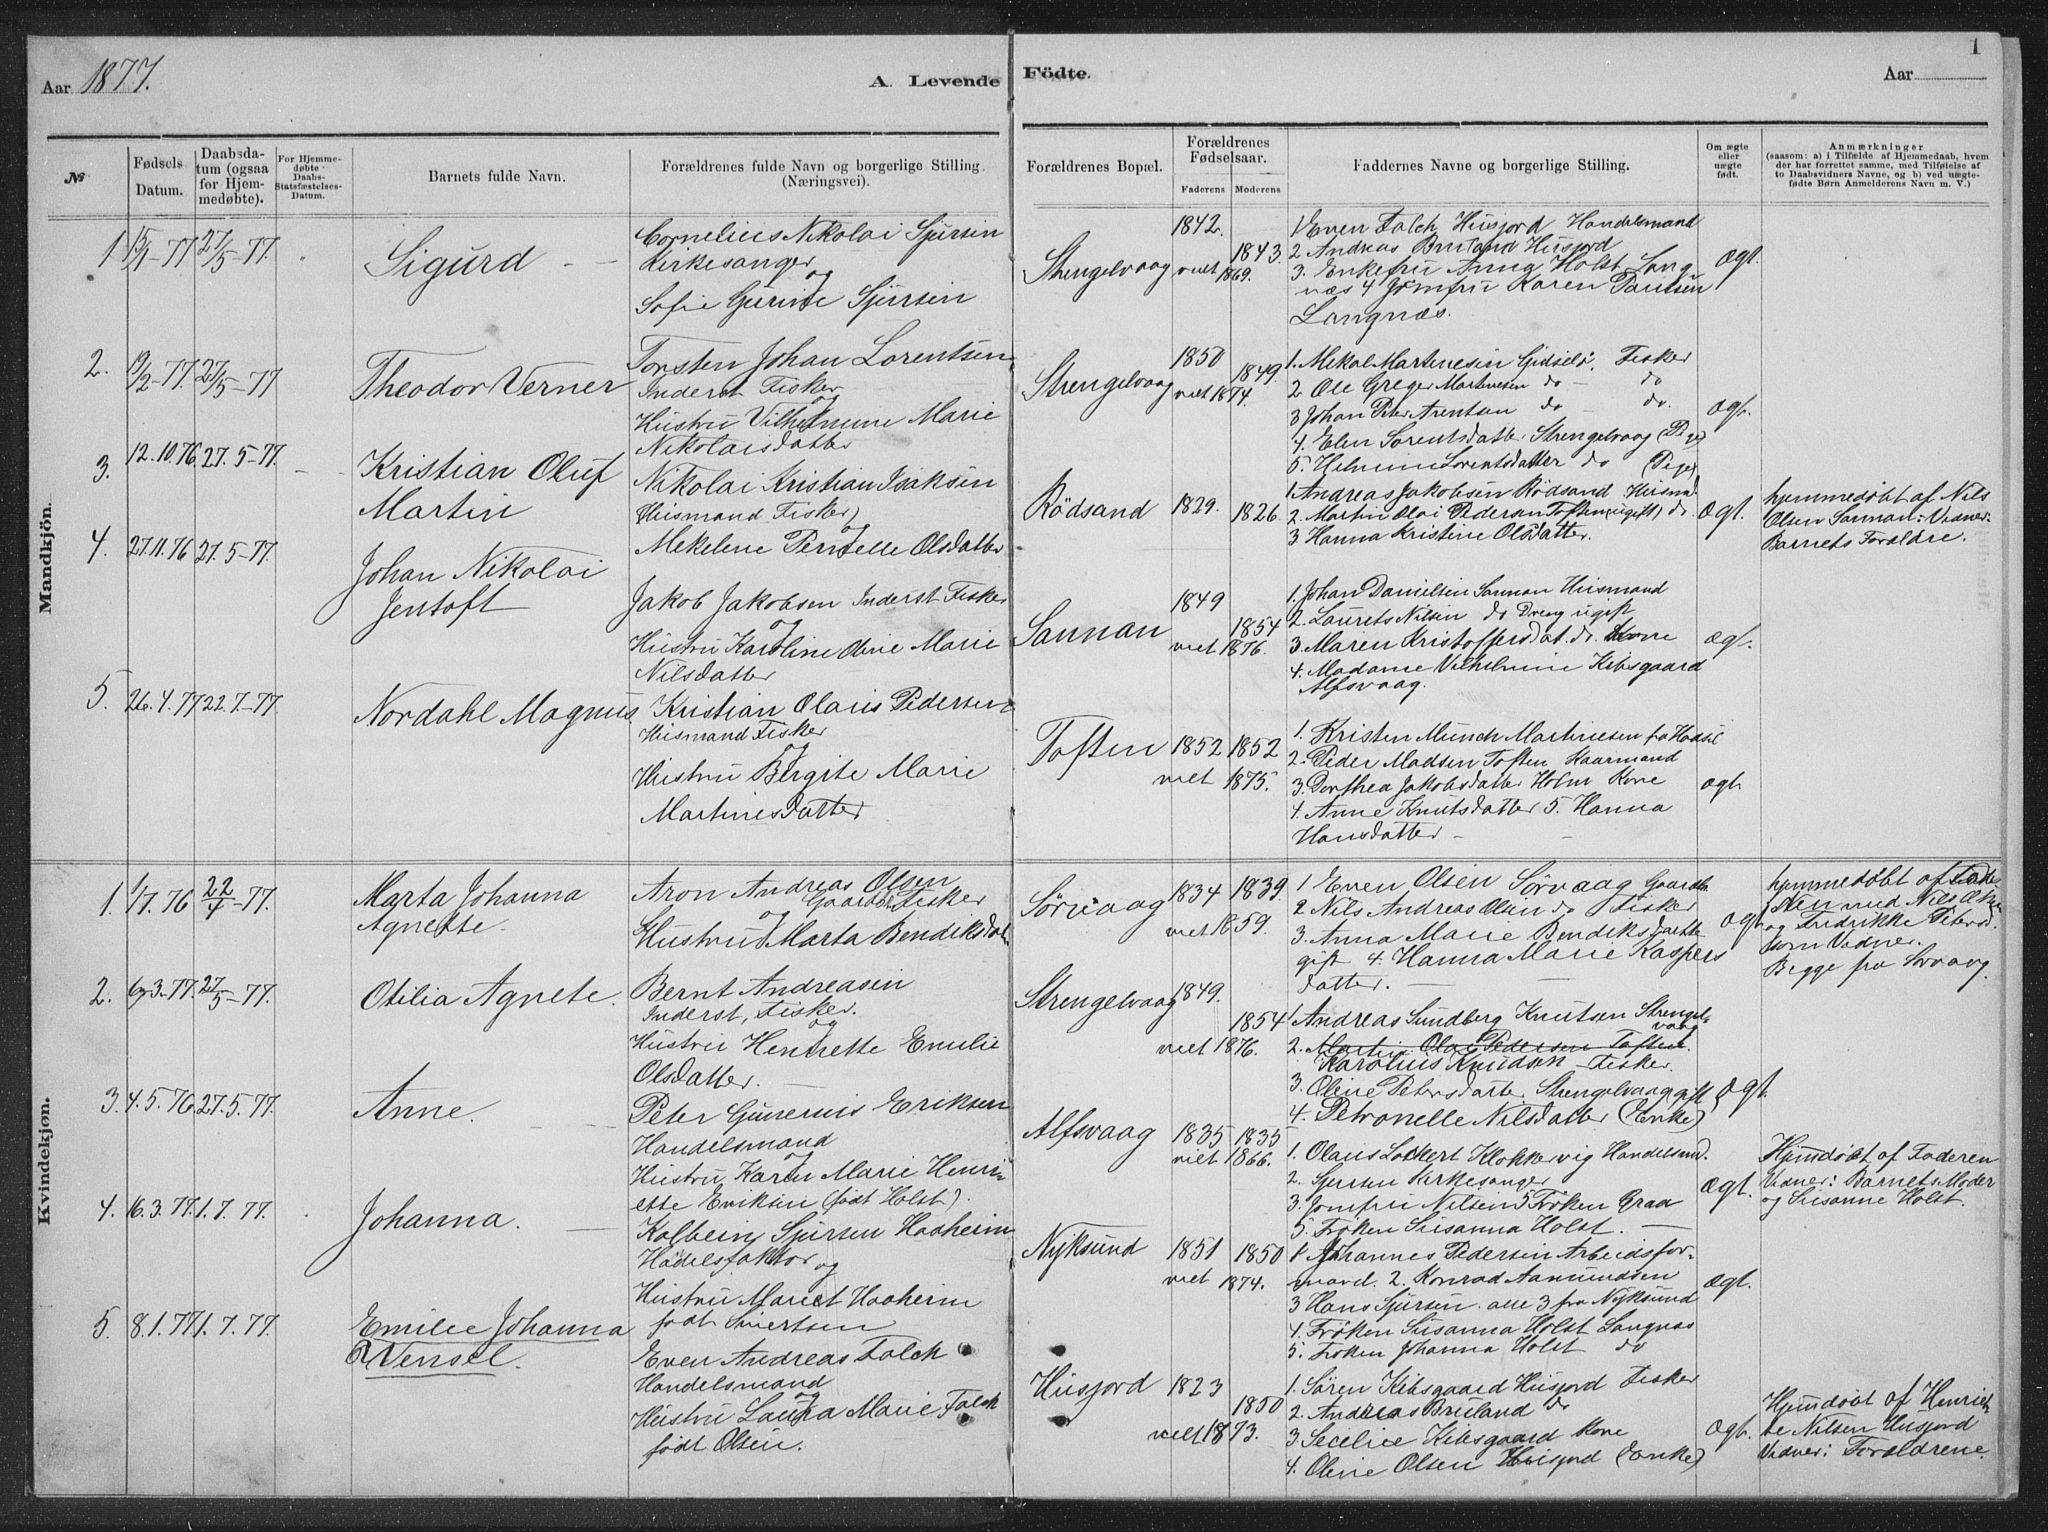 Aar 1877.
A. Levende Födte.
Aar
1
№
Fødsels Datum.
Daabsdatum (ogsaa for Hjemmedøbte).
For Hjemmedøbte Daabs-Statsfæstelses-Datum.
Barnets fulde Navn.
Forældrenes fulde Navn og borgerlige Stilling. (Næringsvei).
Forældrenes Bopæl.
Forældrenes Fødselsaar.
Faderens
Moderens
Faddernes Navne og borgerlige Stilling.
Om ægte eller uægte født.
Anmærkninger
(saasom: a) i Tilfælde af Hjemmedaab, hvem der har forrettet samme, med Tilføielse af to Daabsvidners Navne, og b) ved uægtefødte Børn Anmelderens Navn m. V.)
Mandkjön.
1 15/1-77 27/5-77.
Sigurd
Cornelius Nikolai Sjursen
Kirkesanger
og
Sofie Gurine Sjursen
Strengelvaag
1842.
1843.
viet 1869.
1 Even Falch Husjord Handelsmand
2 Andreas Bruland Husjord
3. Enkefru Anna Holst Lang
næs 4 Jomfru Karen Paulsen
Langnæs.
ægt.
2. 19/2-77. 27/5-77
Theodor Verner
Torsten Johan Lorentsen
Inderst Fisker
og
Hustru Vilhelmine Marie
Nikolaisdatter
Strengelvaag
1850
1849.
viet 1874.
1. Mekal Martinesen Gidselö. Fisker
2 Ole Greger Martinesen do - do
3 Johan Peter Arentsen do - do.
4. Elen Lorentsdatter Strengelvaag (Pige)
5. Helmine Lorentsdatter do (Pige)
ægt.
3. 12.10.76 27.5-77.
Kristian Oluf
Martin
Nikolai Kristian Isaksen
(Husmand Fisker)
og
Mekelene Pernelle Olsdatter
Rödsand
1829. 1826.
1 Andreas Jakobsen Rödsand Husmd.
2. Martin Olai Pedersen Toften (ugift) do
3 Hanna Kristine Olsdatter.
ægt.
hjemmedöbt af Nils
Olsen Sannan: Vidner:
Barnets Forældre.
4. 27.11.76 27.5-77.
Johan Nikolai
Jentoft
Jakob Jakobsen Inderst Fisker
og
Hustru Karoline Oline Marie
Nilsdatter
Sannan
1849
1854
viet 1876.
1. Johan Danielsen Sannan Husmand
2. Laurets Nilsen do Dreng ugift
3. Maren Kristoffersdat. do. Kone
4. Madame Vilhelmine Kibsgaard
Alfsvaag.
ægt.
5. 26.4.77 22.7-77.
Nordahl Magnus
Kristian Olaus Pedersen
Husmand Fisker
og
Hustru Bergite Marie
Martinesdatter
Toften
1852 1852
viet 1875.
1. Kristen Munch Martinesen fra Hadsel
2. Peder Madsen Toften Kaarmand
3. Dorthea Jakobsdatter Holm Kone
4. Anne Knutsdatter 5. Hanna
Hansdatter
ægt.
Kvindekjøn.
1. 1/7.76 22/4-77.
Marta Johanna
Agnette.
Aron Andreas Olsen
Gaardbr. Fisker
og
Hustru Marta Bendiksdatt
Sörvaag
1834 1839.
viet 1859.
1 Even Olsen Sörvaag Gaardbr
2 Nils Andreas Olsen do Fisker
3. Anna Marie Bendiksdatter
gift 4. Hanna Marie Kaspers
datter.
ægt.
hjemmedöbt af
og Fredrikke Petersd.
som Vidner.
Begge fra Sörvaag.
2. 6/3-77. 27/5-77.
Otilia Agnete.
Bernt Andreasen
Inderst, Fisker.
og
Hustru Henrette Emilie
Olsdatter.
Strengelvaag
1849.
1854
viet 1876.
1. Andreas Sundberg Knutsen Strengel-
vaag
2. Martin Olai Pedersen Toften.
Karolius Knudsen Fisker.
3. Oline Petersdatter Strengelvaag gift
4. Petronelle Nilsdatter (Enke)
ægt.
3. 4.5.76 27.5.77.
Anne.
Peter Gunerius Eriksen
Handelsmand
og
Hustru Karen Marie Henri-
ette Eriksen (født Holst).
Alfsvaag
1835 1835
viet 1866.
1. Olaus Lockert Klokkervig Handelsmd.
2. Sjursen Kirkesanger
3. Jomfru Nilsen 5 Frøken Graa
5. Frøken Susanna Holst.
ægt.
Hjemdöbt af Faderen
Vidner: Barnets Moder
og Susanne Holst.
4. 16.3.77. 1.7.77.
Johanna.
Kolbein Sjursen Haaheim
og
Hustru Maret Haaheim
født Sivertsen
Nyksund
1851 1850
viet 1874.
1 Johannes Pedersen Arbeidsfor-
mand. 2. Konrad Aamundsen
3 Hans Sjursen. alle 3 fra Nyksund
4. Frøken Susanna Holst Langnæs
5. Frøken Johanna Holst do
ægt.
5. 8.1.77 1.7.77.
Emilie Johanna
Wensel.
Even Andreas Falch
Handelsmand
og
Hustru Laura Marie Falch
født Olsen.
Husjord
1823
1850
viet 1873.
1. Sören Kibsgaard Husjord Fisker
2. Andreas Bruland do
3 Secelie Kibsgaard Kone
4. Oline Olsen Husjord (Enke)
ægt.
Hjemdöbt af Henriet-
te Nilsen Husjord
Vidner: Forældrene.